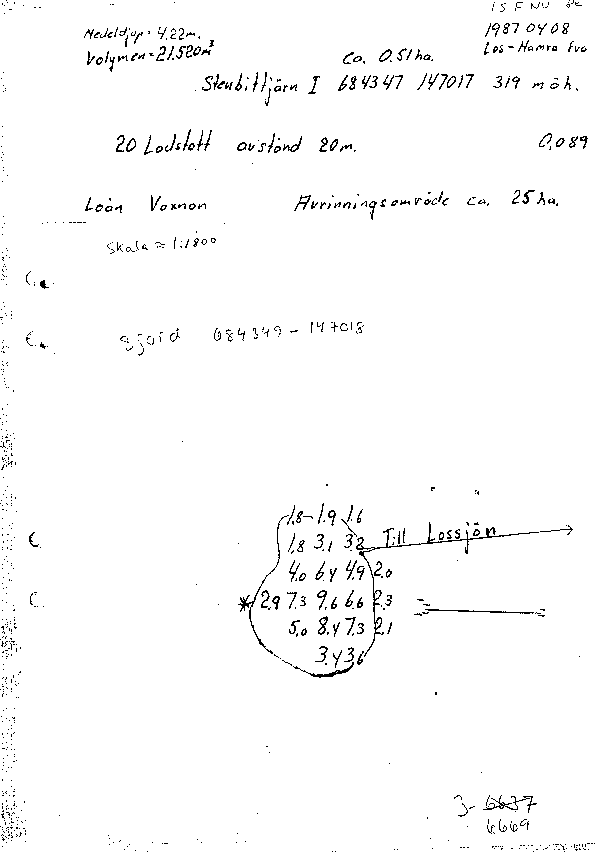 Medeldjup = 4.22 m.
Volymen = 21.520 m³
1987 04 08
Los-Hamra Fvo
ca. 0.51 ha.
Stenbittjärn I 684347 147017 319 möh.
20 Lodskott avstånd 20 m.
0,089
Loån Voxnan
Avrinningsområde ca. 25 ha.
Skala ≈ 1:1800
gjord 684349 - 147018
1.8 1.9 1.6
1.8 3.1 3.8 Till Lossjön
4.0 6.4 4.9 2.0
* 2.9 7.3 9.6 6.6 2.3
5.0 8.4 7.3 2.1
3.4 3.6
3- 6637
6669